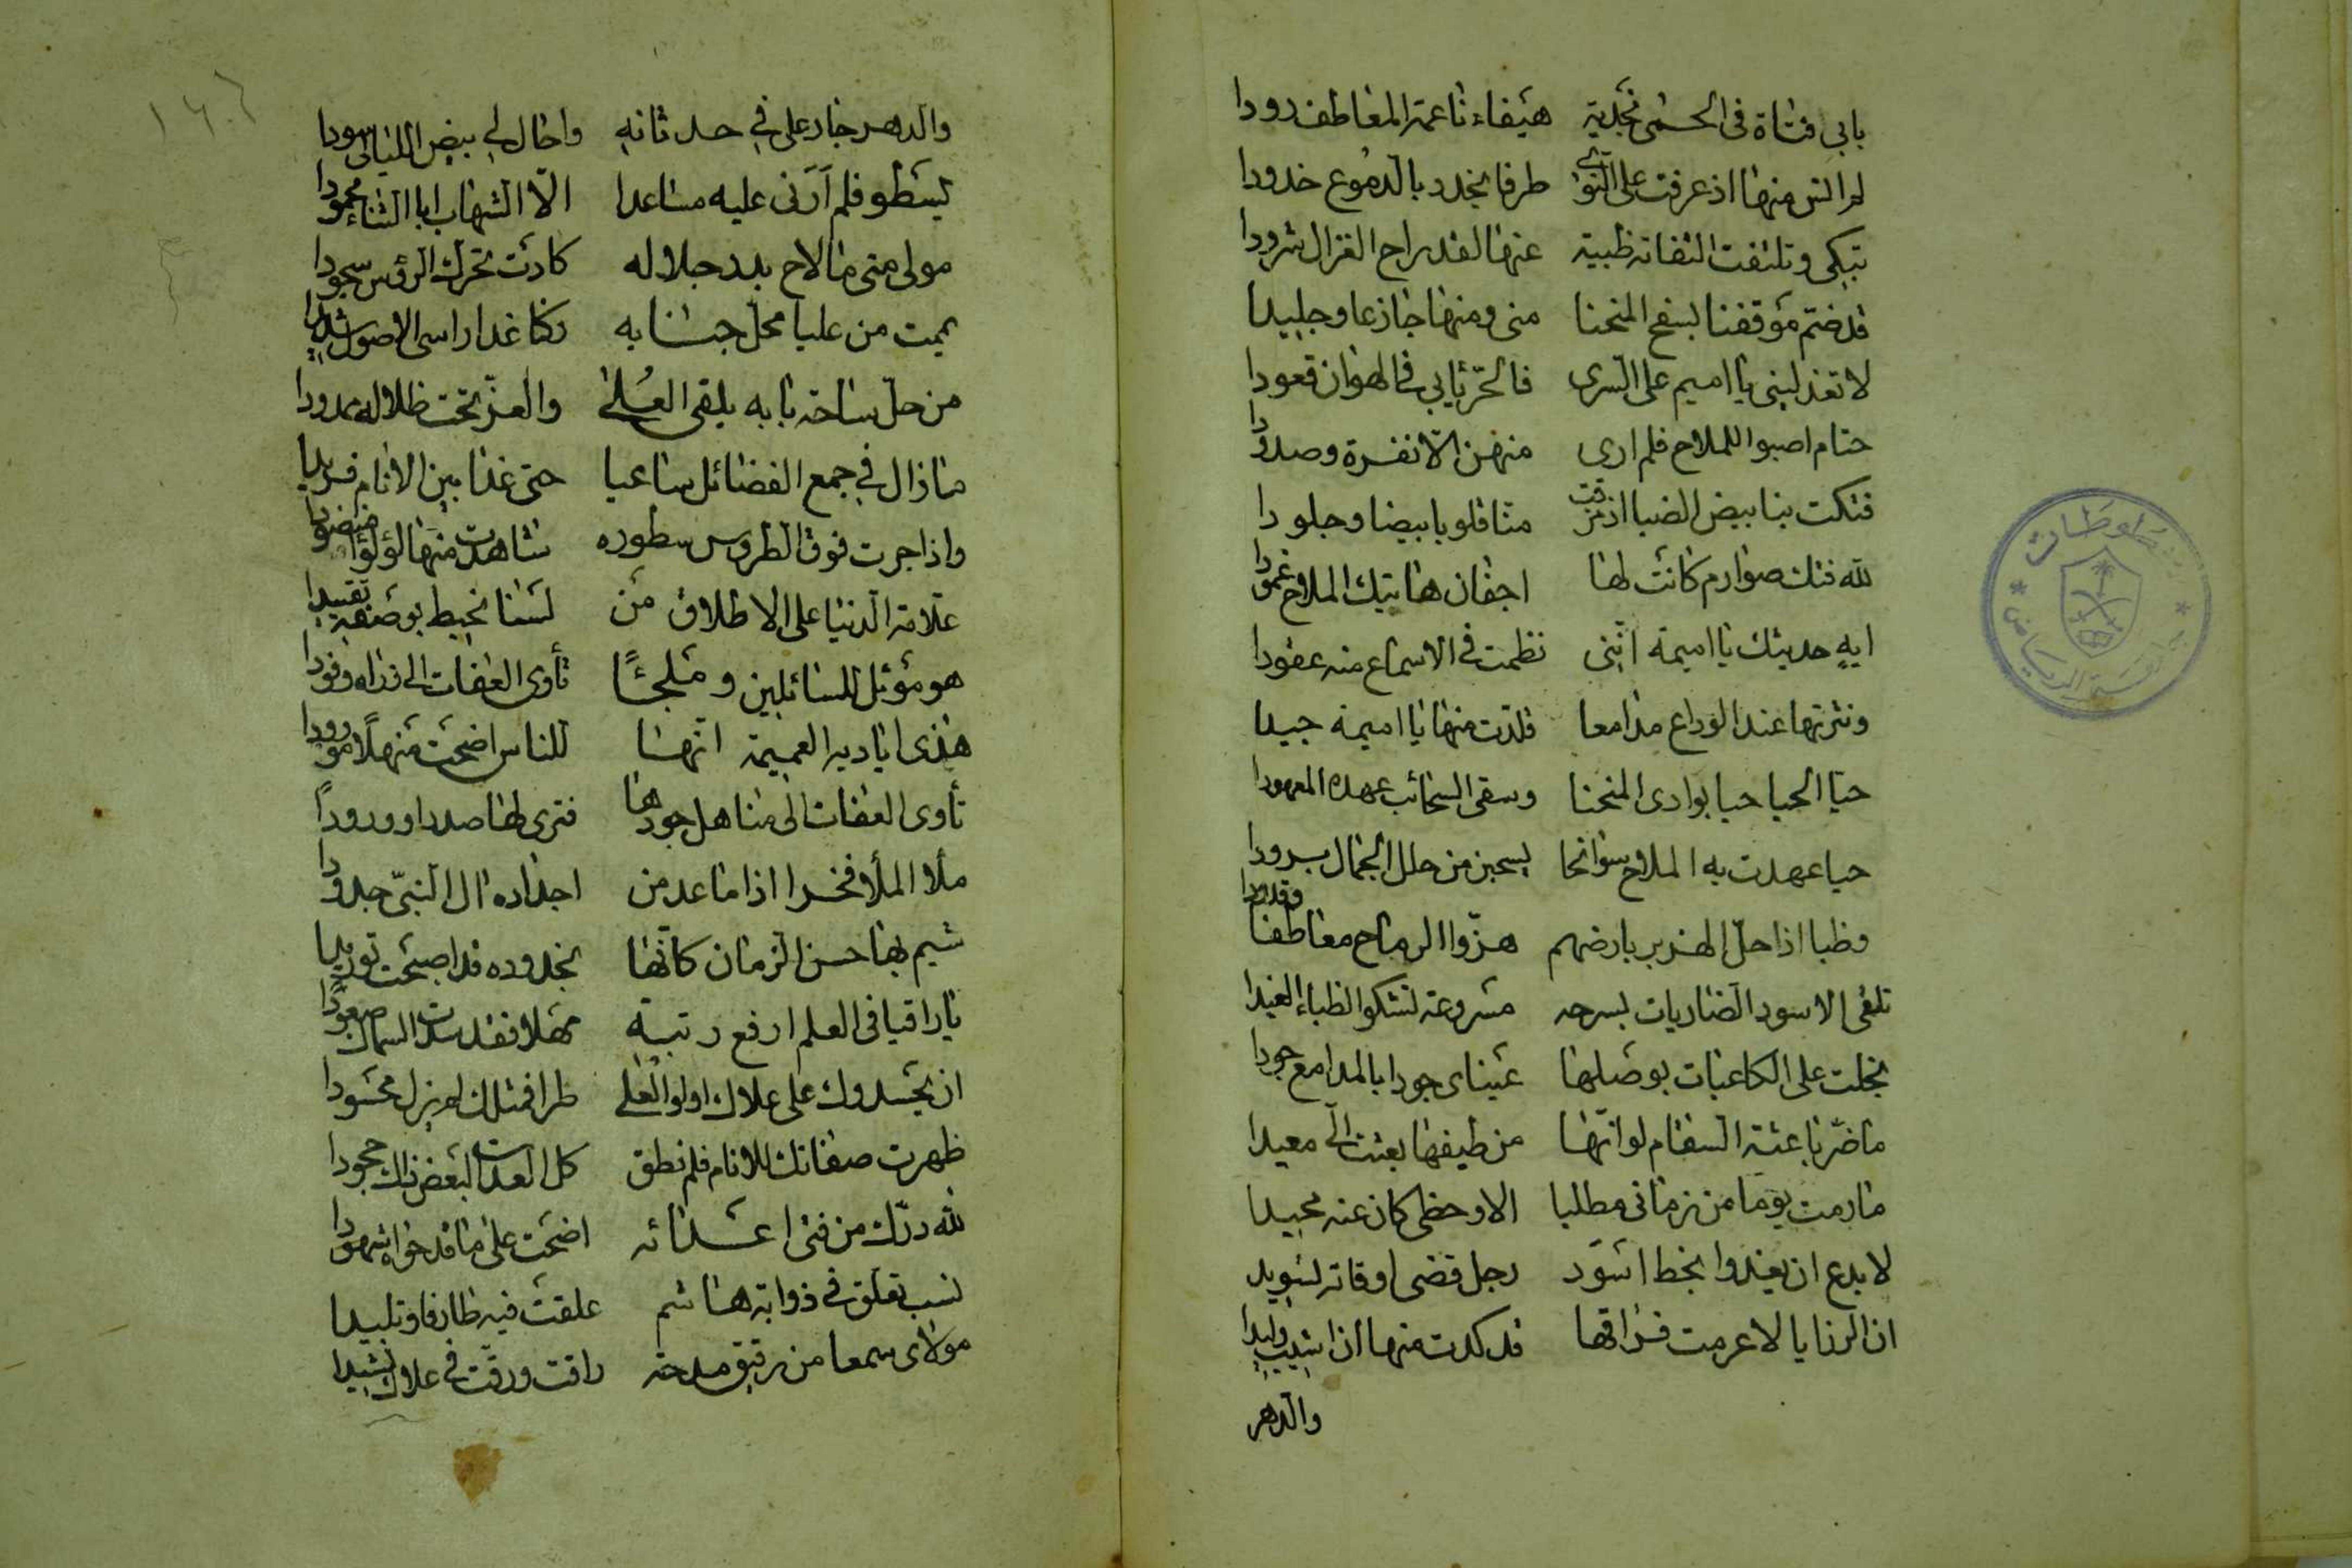 بابي فتاة في الحمى نجدية هيفاء ناعمة المعاطف رودا
لم انس منها اذ عرفت على النوى طرفا يخدد بالدموع خدودا
تبكى وتلتفت التفاتة ظبية عنها لقد راح الغزال شرودا
قد ضم موقفنا بسفح المنحنا منى ومنها جازعا وجليدا
لا تعذلينى يا اميم على السرى فالحر يابى في الهوان قعودا
حتام اصبوا للملاح فلم ارى منهن الا نفرة وصدودا
فتكت بنا بيض الضبا اذ مزقت منا قلوبا بيضا وجلودا
لله فتك صوارم كانت لها اجفان هاتيك الملاح غمودا
ايه حديثك يا اميمة اننى نظمت في الاسماع منه عقودا
ونثرتها عند الوداع مدامعا قلدت منها يا اميمة جيدا
حيا الحيا حيا بوادى المنحنا وسقى السحائب عهده المعهودا
حيا عهدت به الملاح سوانحا يسحبن من حلل الجمال برودا
وظبا اذا حل الهزبر بارضهم هزوا الرماح معاطفا وقدودا
تلقى الاسود الضاريات بسرحه مشروعة لتشكوا الظباء الغيدا
بخلت على الكاعبات بوصلها عيناى جودا بالمدامع جودا
ما ضر باعثة السقام لو انها من طيفها بعثت الى معيدا
ما رمت يوما من زمانى مطلبا الا وحظى كان عنه محيدا
لا بدع ان يغدوا بخط اسود رجل قضى اوقاته تسويد
ان الرزايا لا عرمت فراقها قد كدت منها ان اشيب وليدا
والدهر
والدهر جار على في حدثانه واحال لي بيض الليالى سودا
يسطو فلم ار لى عليه مساعدا الا الشهاب ابا الثناء محمودا
مولى متى ما لاح بدر جلاله كادت تخر له الرؤس سجودا
يممت من عليا محل جنابه ركنا غدا راسى الاصول شديدا
من حل ساحة بابه يلقى العلى والعز تحت ظلاله ممدودا
ما زال في جمع الفضائل ساعيا حتى غدا بين الانام فريدا
واذا جرت فوق الطروس سطوره شاهدت منها لؤلؤا منضودا
علامة الدنيا على الاطلاق من لسنا نحيط بوصفه تقييدا
هو مؤئل للسائلين وملجئًا تأوى العفات الى ذراه وفودا
هذى اياديه العميمة انها للناس اضحت منهلًا مورودا
تأوى العفات الى مناهل جودها فترى لها صدرا وورودًا
ملأ الملأ فخرا اذا ما عد من اجداده ال النبى جدودا
شيم بها حسن الزمان كانها بخدوده قد اصبحت توريدا
يا راقيا في العلم ارفع رتبة مهلا فقد سدت السماك صعودًا
ان يحسدوك على علاك اولو العلى طرا فمثلك لم يزل محسودا
ظهرت صفاتك للانام فلم نطق كل العدات لبعض ذاك جحودا
لله درك من فتى اعدائه اضحت على ما قد حواه شهودا
نسب تعلق في ذوابة هاشم علقت فيه طارفا وتليدا
مولاى سمعا من رقيق مدحة راقت ورقت في علاك نشيدا